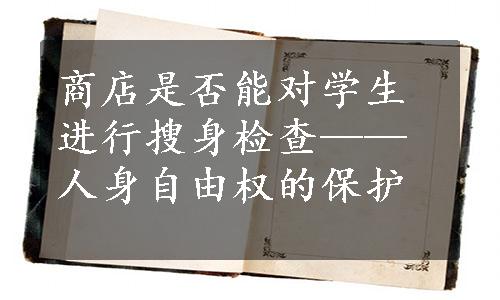 商店是否能对学生
进行搜身检查——
人身自由权的保护